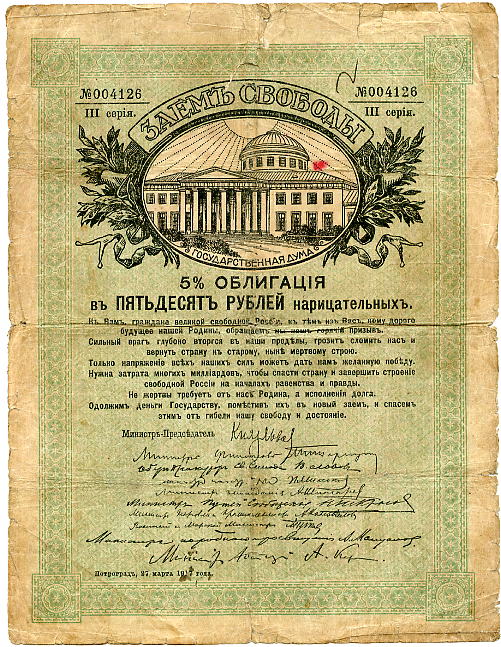 №004126
№004126
III серія.
III серія.
ЗАЕМЪ СВОБОДЫ
ГОСУДАРСТВЕННАЯ ДУМА
5% ОБЛИГАЦІЯ
въ ПЯТЬДЕСЯТЪ РУБЛЕЙ нарицательныхъ.
Къ Вамъ, граждане великой свободной Россіи, къ тѣмъ изъ Васъ, кому дорого
будущее нашей Родины, обращаемъ мы нашъ горячій призывъ.
Сильный врагъ глубоко вторгся въ наши предѣлы, грозитъ сломить насъ и
вернуть страну къ старому, нынѣ мертвому строю.
Только напряженіе всѣхъ нашихъ силъ можетъ дать намъ желанную побѣду.
Нужна затрата многихъ милліардовъ, чтобы спасти страну и завершить строеніе
свободной Россіи на началахъ равенства и правды.
Не жертвы требуетъ отъ насъ Родина, а исполненія долга.
Одолжимъ деньги Государству, помѣстивъ ихъ въ новый заемъ, и спасемъ
этимъ отъ гибели нашу свободу и достояніе.
Министръ-Предсѣдатель
Министръ Финансовъ
Оберпрокуроръ Св. Синода
Министръ Путей Сообщенія
Военный и Морской Министръ
Министръ народнаго просвѣщенія А. Мануиловъ
Министръ Юстиціи А. Кер
Петроградъ, 27 марта 1917 года.